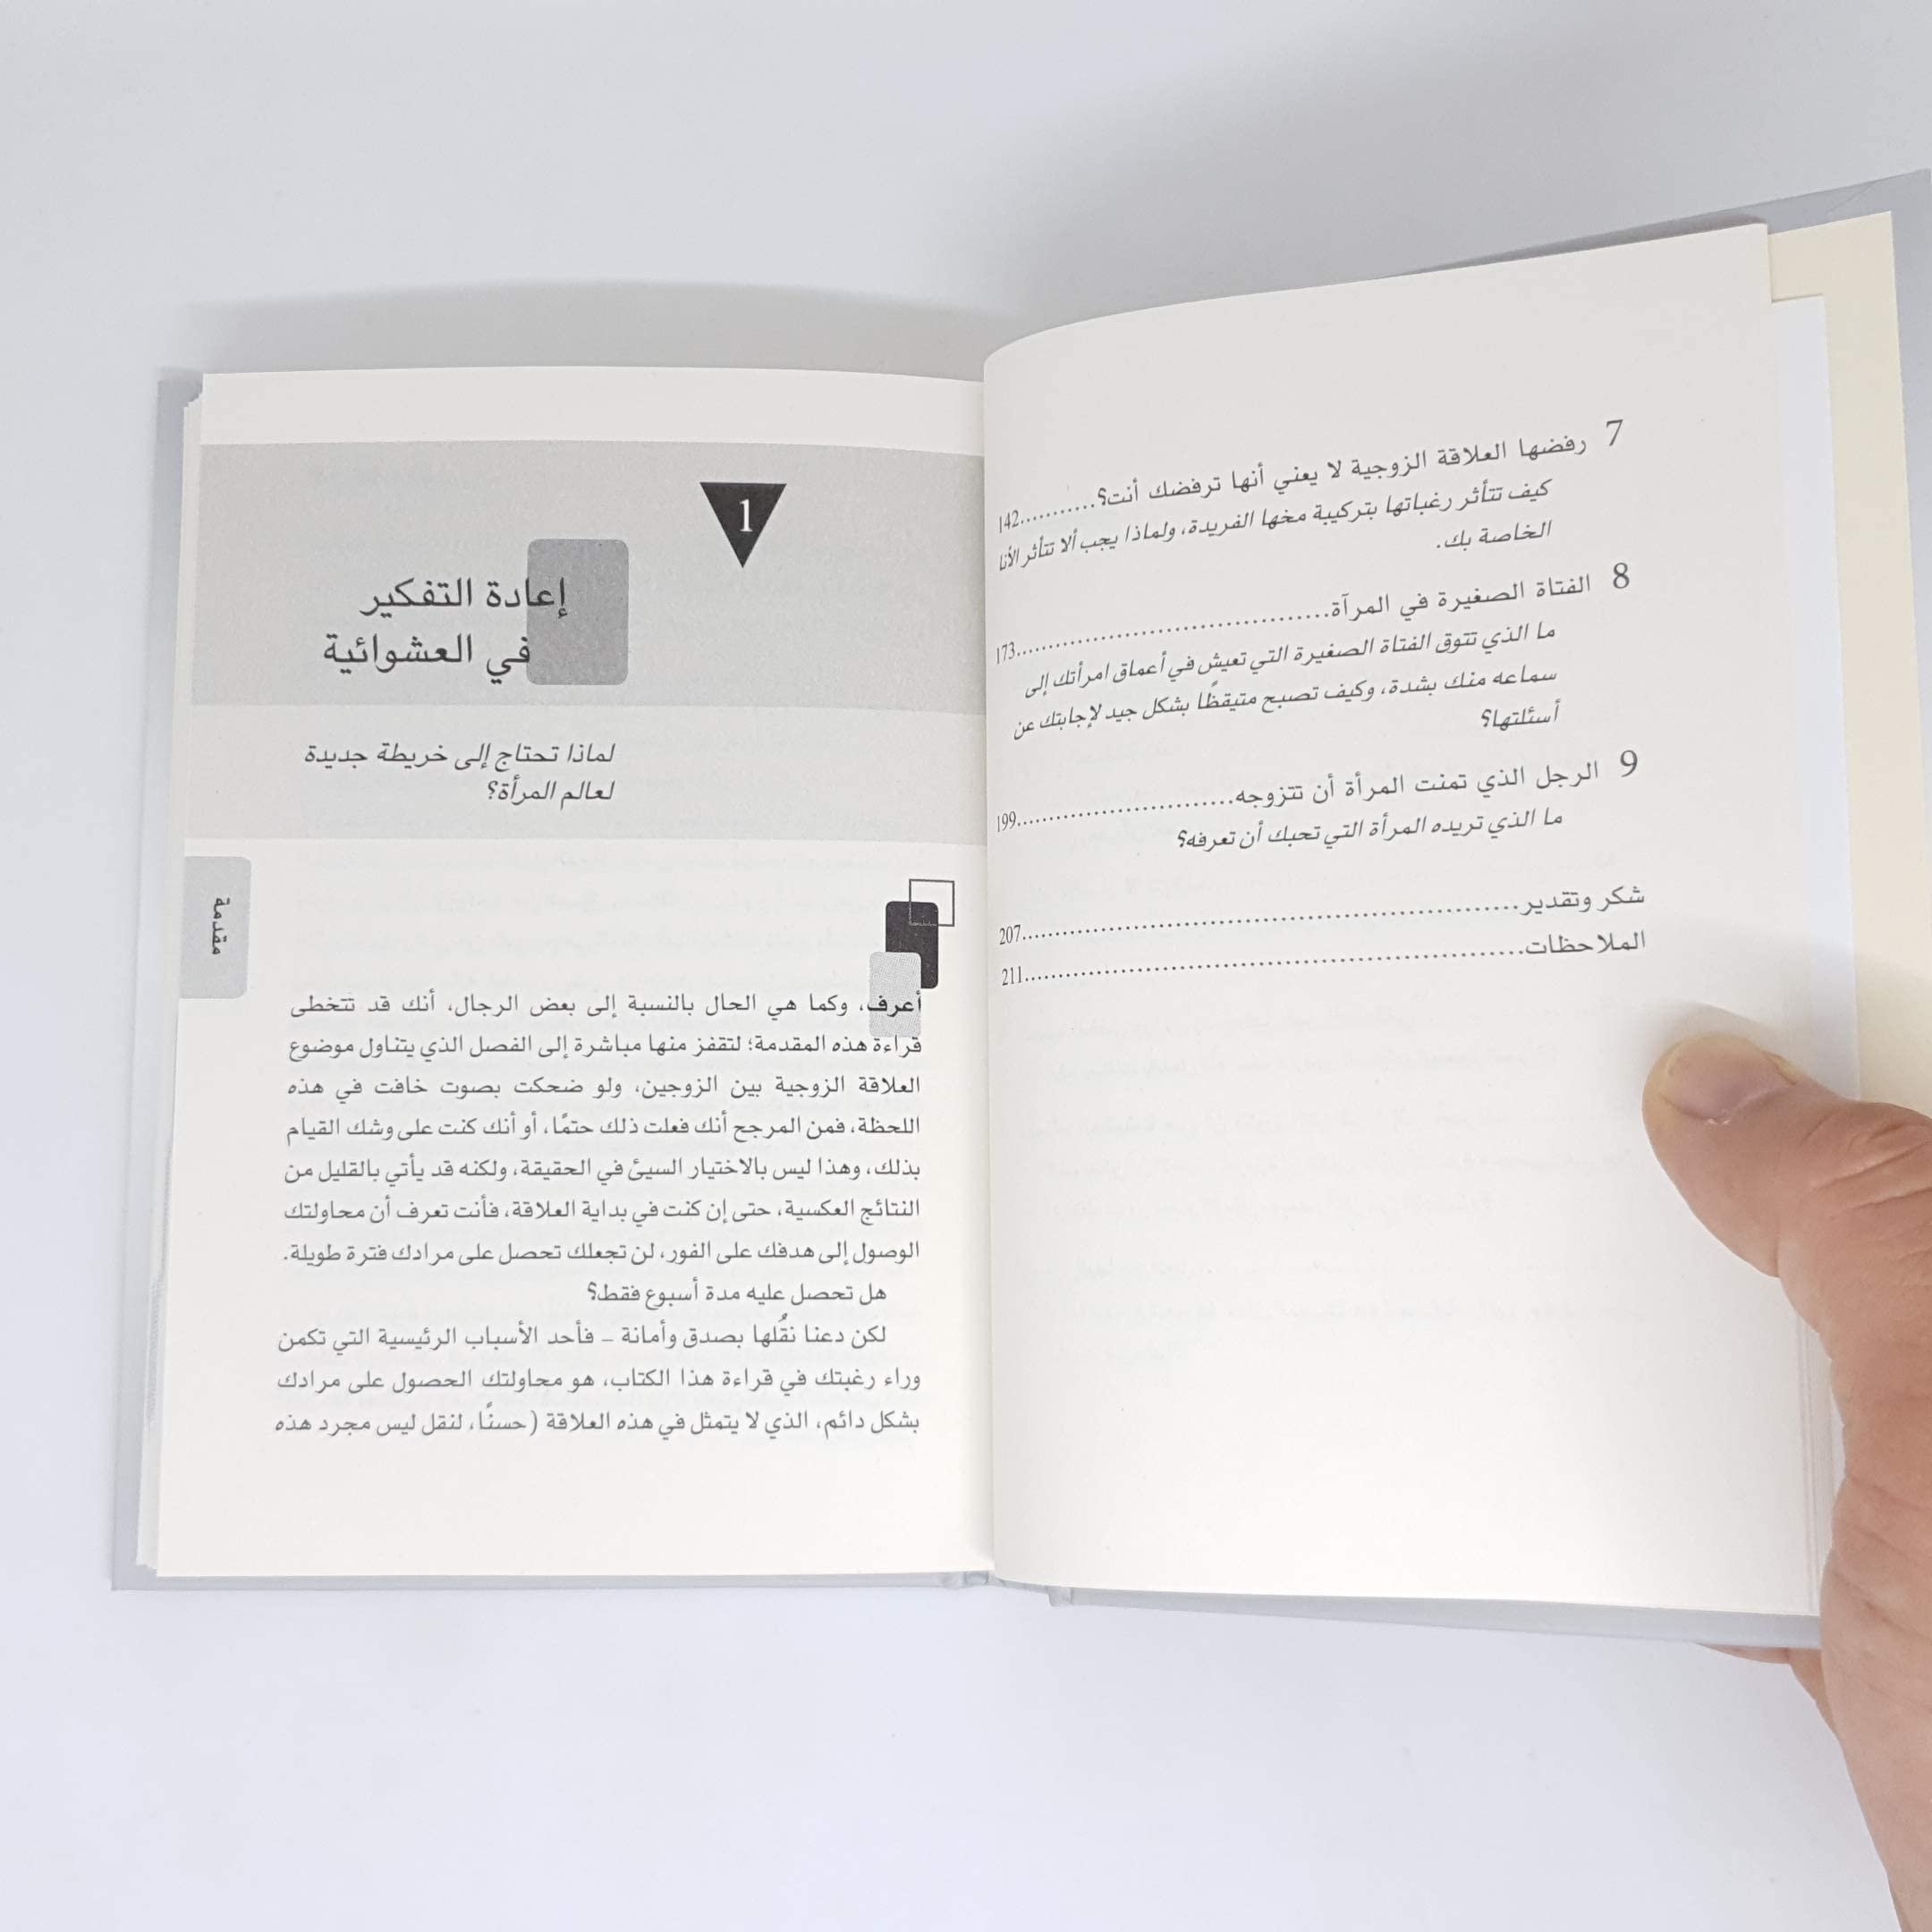 7 رفضها العلاقة الزوجية لا يعني أنها ترفضك أنت؟...........142
كيف تتأثر رغباتها بتركيبة مخها الفريدة، ولماذا يجب ألا تتأثر الأنا
الخاصة بك.
8 الفتاة الصغيرة في المرآة................................173
ما الذي تتوق الفتاة الصغيرة التي تعيش في أعماق امرأتك إلى
سماعه منك بشدة، وكيف تصبح متيقظًا بشكل جيد لإجابتك عن
أسئلتها؟
9 الرجل الذي تمنت المرأة أن تتزوجه........................199
ما الذي تريده المرأة التي تحبك أن تعرفه؟
شكر وتقدير................................................207
الملاحظات................................................211
1
إعادة التفكير
في العشوائية
لماذا تحتاج إلى خريطة جديدة
لعالم المرأة؟
مقدمة
أعرف، وكما هي الحال بالنسبة إلى بعض الرجال، أنك قد تتخطى
قراءة هذه المقدمة؛ لتقفز منها مباشرة إلى الفصل الذي يتناول موضوع
العلاقة الزوجية بين الزوجين، ولو ضحكت بصوت خافت في هذه
اللحظة، فمن المرجح أنك فعلت ذلك حتمًا، أو أنك كنت على وشك القيام
بذلك، وهذا ليس بالاختيار السيئ في الحقيقة، ولكنه قد يأتي بالقليل من
النتائج العكسية، حتى إن كنت في بداية العلاقة، فأنت تعرف أن محاولتك
الوصول إلى هدفك على الفور، لن تجعلك تحصل على مرادك فترة طويلة.
هل تحصل عليه مدة أسبوع فقط؟
لكن دعنا نقُلها بصدق وأمانة – فأحد الأسباب الرئيسية التي تكمن
وراء رغبتك في قراءة هذا الكتاب، هو محاولتك الحصول على مرادك
بشكل دائم، الذي لا يتمثل في هذه العلاقة (حسنًا، لنقل ليس مجرد هذه